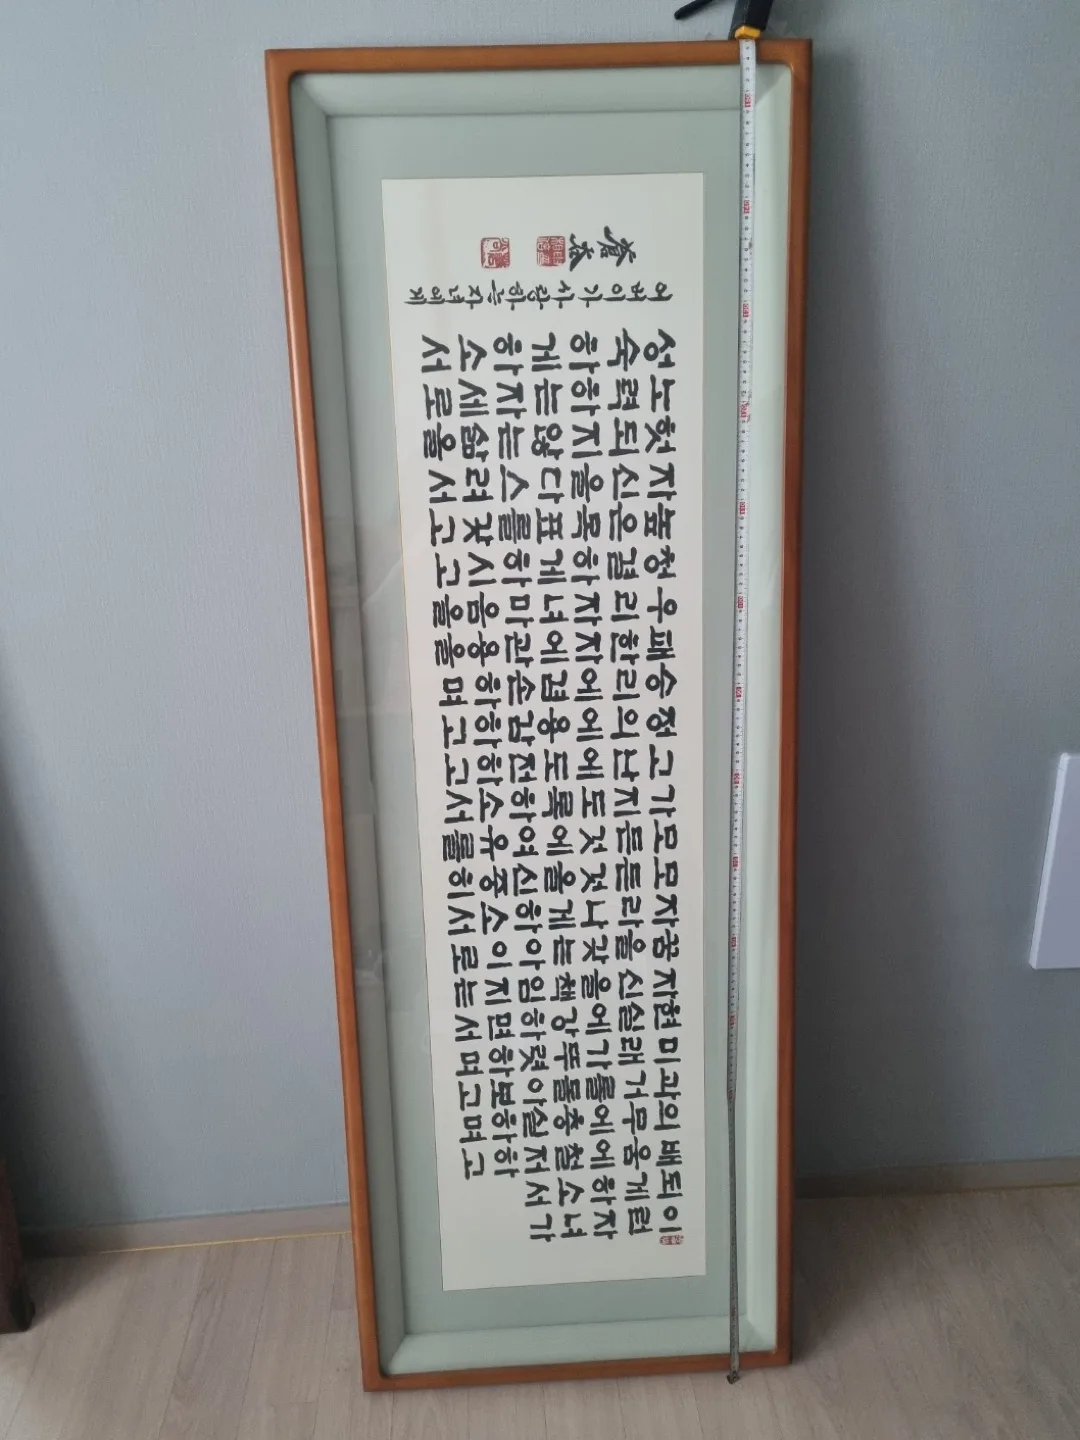 이런자녀가
되게하소서
배움에철저하고
의무에충실하며
과거를돌아보고
미래가뚜렷하며
현실에강하면서
자신을책임지는
꿈을갖는아이로
자라나게하소서
모든것을신중히
모든것에여유를
가지도록하소서
고난에도전하고
정의에용감하고
승리에겸손하며
패한자에관용을
우리자녀마음을
청결하게하시고
높은목표를갖고
자신을다스려서
헛되지않는삶을
노력하는자세로
성숙하게하소서
어버이가사랑하는자녀에게